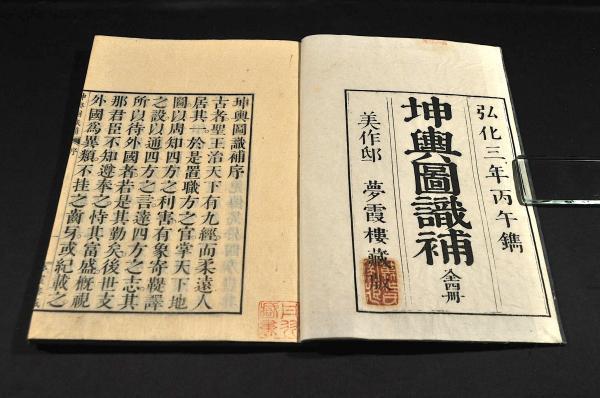 弘化三年丙午鐫
坤輿圖識補
全四冊
美作邸 夢霞樓藏版
坤輿圖識補序
古者聖王治天下有九經而柔遠人
居其一於是置職方之官掌天下地
圖以周知四方之利害有象寄鞮譯
之設以通四方之言達四方之志其
所以待外國者若是其勤矣後世支
那君臣不知遵奉之恃其富盛概視
外國爲異類不挂之齒牙或紀載之